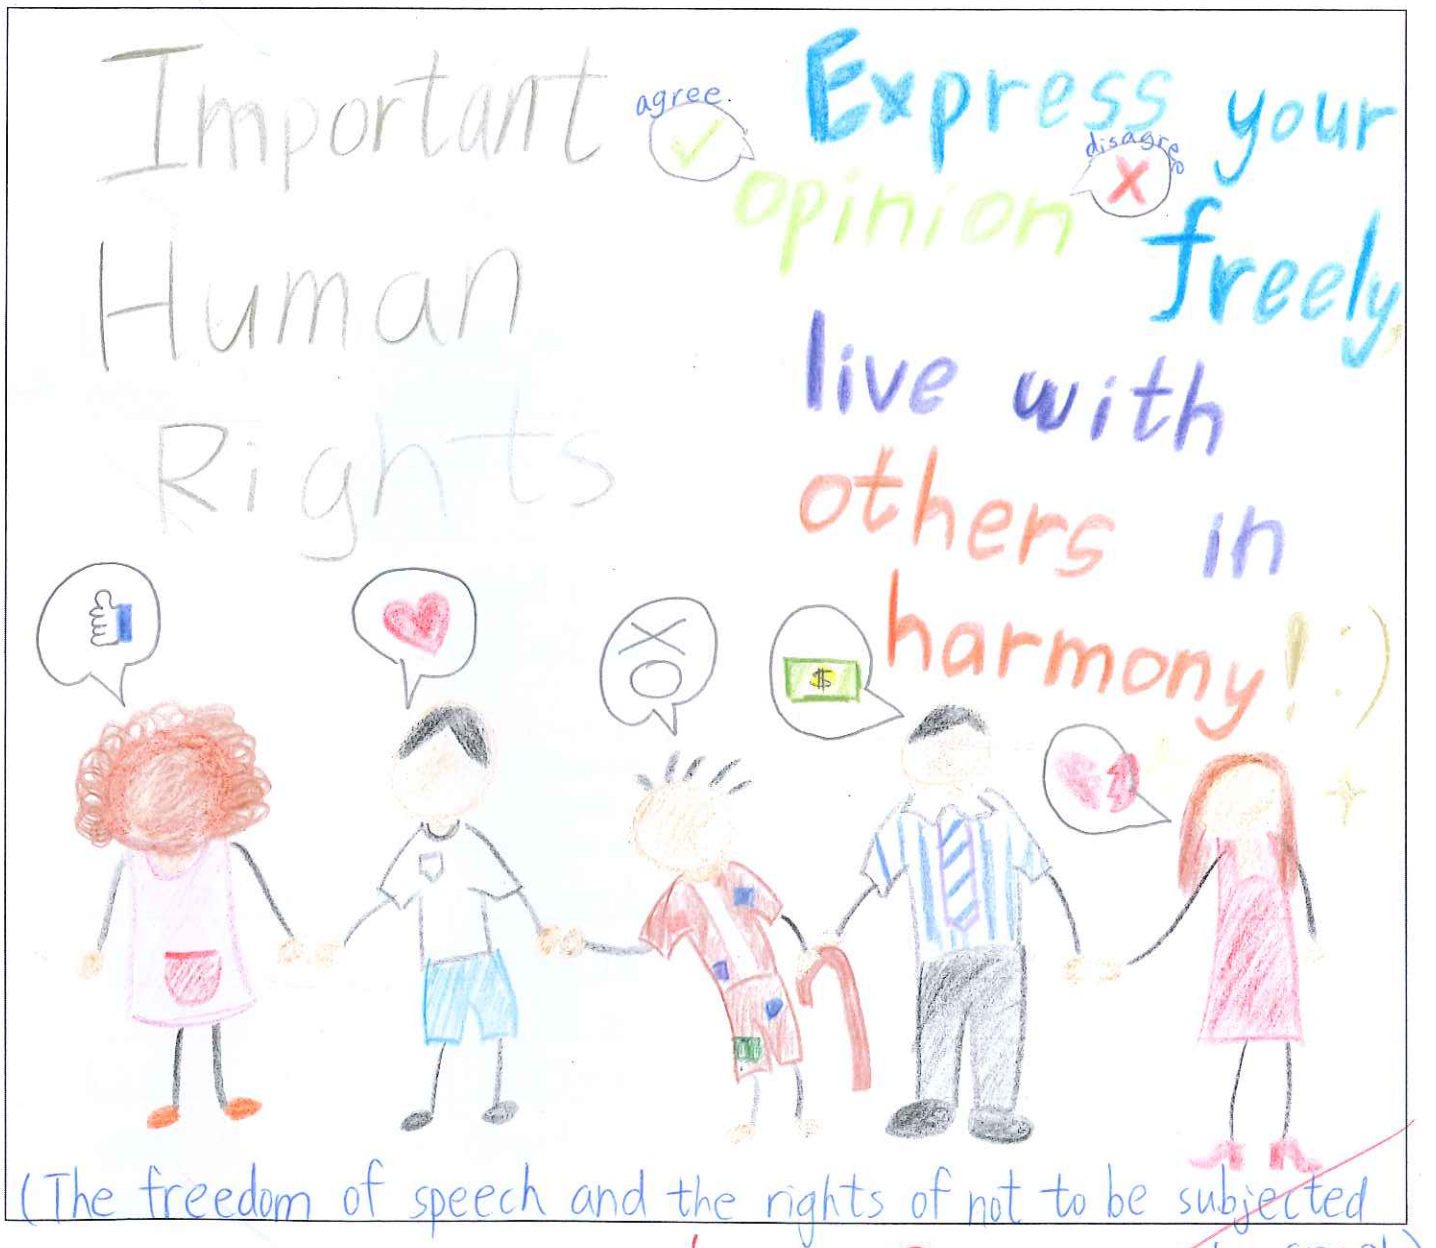 Important
Human
Rights
agree.
Express your
disagree
opinion
freely,
live with
others in
harmony! :)
$
(The freedom of speech and the rights of not to be subjected